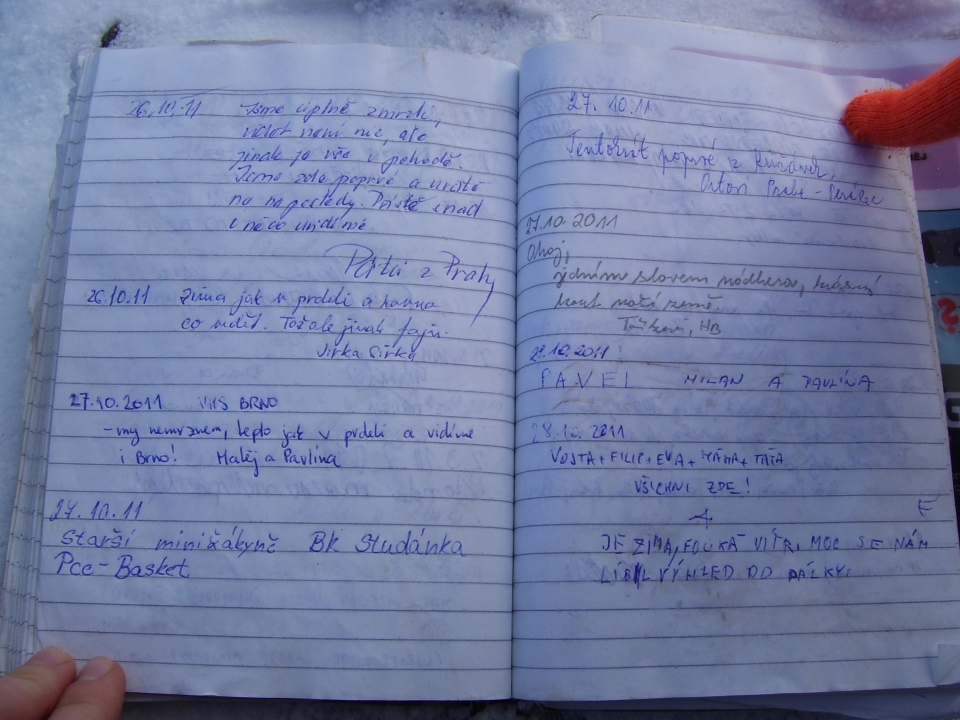 26.10.11 Jsme úplně zmrzlí,
vidět není nic, ale
jinak je vše v pohodě.
Jsme zde poprvé a určitě
ne naposledy. Příště snad
i něco uvidíme
z Prahy
26.10.11 Zima jak v prdeli a hovno
co vidět. Tož ale jinak fajn.
Jirka Sirka
27.10.2011 VHS BRNO
-my nemrznem, teplo jak v prdeli a vidíme
i Brno! Matěj a Pavlína
27.10.11
Starší minižákyně BK Studánka
Pce-Basket
27.10.11
Tentokrát poprvé z
27.10.2011
Ahoj,
jedním slovem nádhera, krásný
kout naší země.
HB
27.10.2011
PAVEL MILAN A PAVLÍNA
28.10.2011
VOJTA+FILIP+EVA+MÁMA+TÁTA
VŠICHNI ZDE!
JE ZIMA, FOUKÁ VÍTR, MOC SE NÁM
LÍBIL VÝHLED DO DÁLKY.